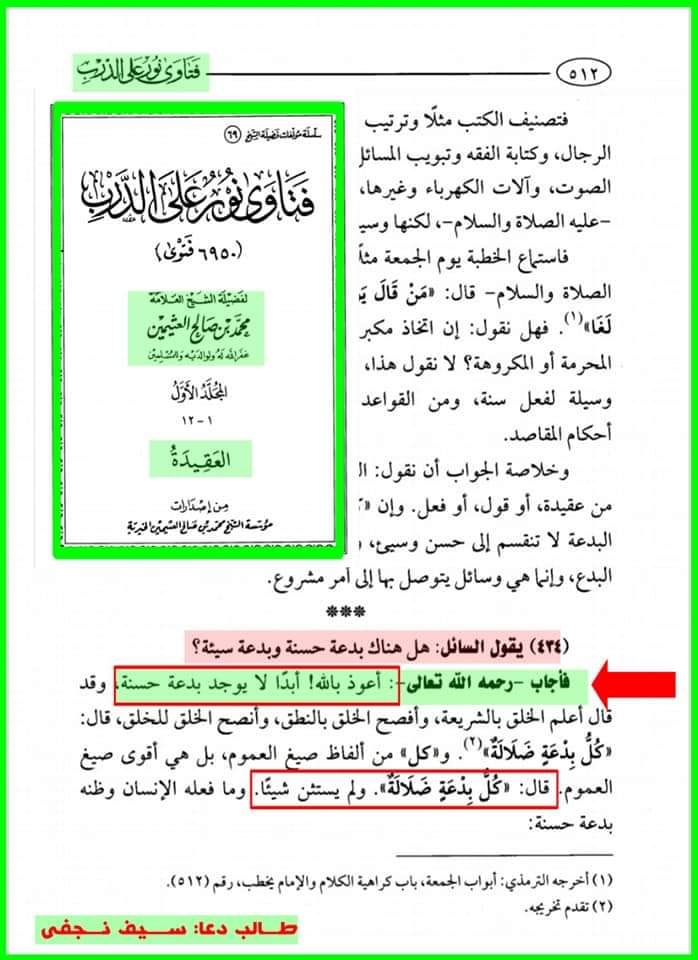 فتاوى نور على الدرب
٥١٢
فتصنيف الكتب مثلًا وترتيب
الرجال، وكتابة الفقه وتبويب المسائل
الصوت، وآلات الكهرباء وغيرها،
-عليه الصلاة والسلام-، لكنها وسي
فاستماع الخطبة يوم الجمعة مثلًا
الصلاة والسلام- قال: «مَنْ قَالَ يَ
لَغَا»(١). فهل نقول: إن اتخاذ مكبر
المحرمة أو المكروهة؟ لا نقول هذا،
وسيلة لفعل سنة، ومن القواعد
أحكام المقاصد.
وخلاصة الجواب أن نقول: ال
من عقيدة، أو قول، أو فعل. وإن «كُ
البدعة لا تنقسم إلى حسن وسيئ،
البدع، وإنما هي وسائل يتوصل بها إلى أمر مشروع.
سلسلة مؤلفات فضيلة الشيخ (٦٩)
فَتَاوَى نُورٌ عَلَى الدَّرْبِ
(٦٩٥٠ فَتْوَى)
لفضيلة الشيخ العلامة
محمد بن صالح العثيمين
غفر الله له ولوالديه وللمسلمين
المُجَلَّدُ الأَوَّلُ
١-١٢
العَقِيدَةُ
من إصدارات
مؤسسة الشيخ محمد بن صالح العثيمين الخيرية
***
(٤٣٤) يقول السائل: هل هناك بدعة حسنة وبدعة سيئة؟
فأجاب -رحمه الله تعالى-: أعوذ بالله! أبدًا لا يوجد بدعة حسنة، وقد
قال أعلم الخلق بالشريعة، وأفصح الخلق بالنطق، وأنصح الخلق للخلق، قال:
«كُلُّ بِدْعَةٍ ضَلَالَةٌ»(٢). و«كل» من ألفاظ صيغ العموم، بل هي أقوى صيغ
العموم. قال: «كُلُّ بِدْعَةٍ ضَلَالَةٌ». ولم يستثن شيئًا. وما فعله الإنسان وظنه
بدعة حسنة:
(١) أخرجه الترمذي: أبواب الجمعة، باب كراهية الكلام والإمام يخطب، رقم (٥١٢).
(٢) تقدم تخريجه.
طالب دعا: سيف نجفى